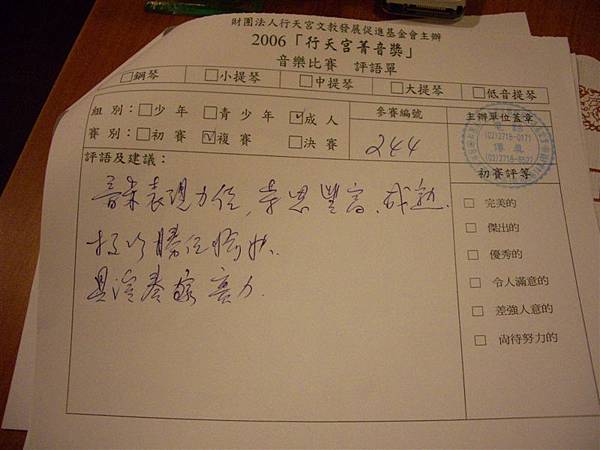 財團法人行天宮文教發展促進基金會主辦
2006「行天宮菁音獎」
音樂比賽 評語單
□鋼琴 □小提琴 □中提琴 □大提琴 □低音提琴
組別：□少年 □青少年 ☑成人
賽別：□初賽 ☑複賽 □決賽
參賽編號
244
主辦單位蓋章
電話
(02)2718-0171
傳真
評語及建議：
音樂表現力佳，樂思豐富、成熟.
技巧勝任愉快.
具演奏家實力.
初賽評等
□ 完美的
□ 傑出的
□ 優秀的
□ 令人滿意的
□ 差強人意的
□ 尚待努力的